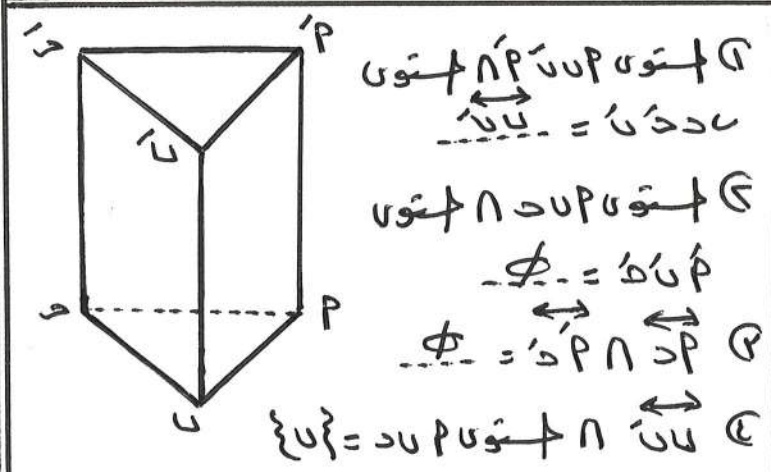 حَ
مَ
بَ
حـ
م
ب
① المستوى م ب بَ مَ ∩ المستوى
ب حـ حَ بَ = ب بَ
② المستوى م ب حـ ∩ المستوى
مَ بَ حَ = ϕ
③ م حـ ∩ مَ حَ = ϕ
④ ب بَ ∩ المستوى م ب حـ = {ب}